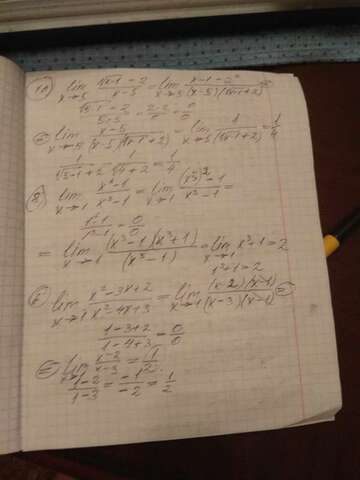 7A) lim x→5 √x-1 - 2 / x-5 = lim x→5 x-1-2² / (x-5)(√x-1+2) =
√5-1 - 2 / 5-5 = 2-2 / 0 = 0/0
= lim x→5 x-5 / (x-5)(√x-1+2) = lim x→5 1 / (√x-1+2) = 1/4
1 / √5-1+2 = 1 / √4+2 = 1/4
8) lim x→1 / x³-1 = lim x→1 (x³)²-1 / x³-1 =
1-1 / 1³-1 = 0/0
= lim x→1 (x³-1)(x³+1) / (x³-1) = lim x→1 x³+1 = 2
1³+1=2
lim x→1 x²-3x+2 / x²-4x+3 = lim x→1 (x-2)(x-1) / (x-3)(x-1) =
1-3+2 / 1-4+3 = 0/0
= lim x→1 x-2 / x-3 = 1/2
1-2 / 1-3 = -1 / -2 = 1/2